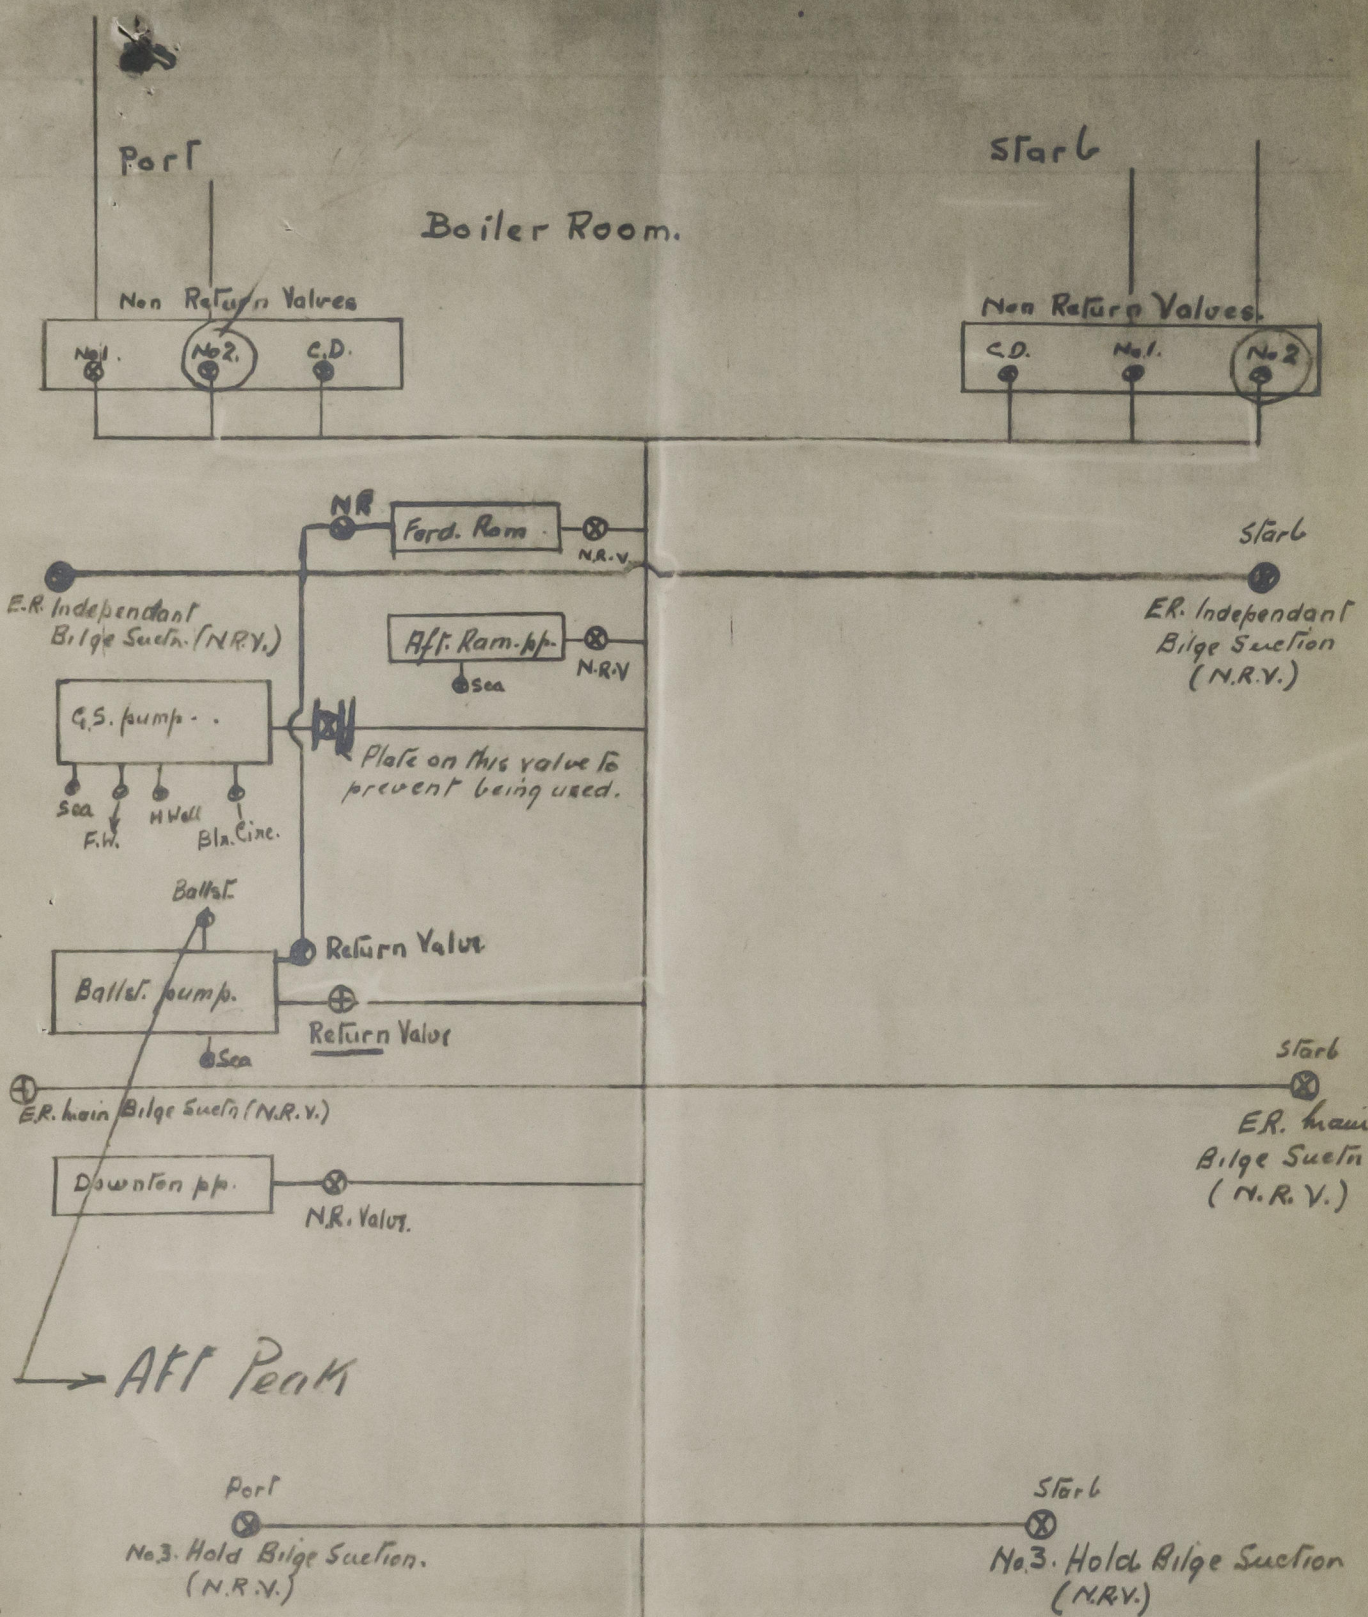 Port
Starb
Boiler Room.
Non Return Valves
Non Return Valves.
No.1.
No2.
C.D.
C.D.
No.1.
No 2
NR
Ford. Ram.
N.R.V.
Starb
E.R. Independant
Bilge Suctn. (N.R.V.)
ER. Independant
Bilge Suction
(N.R.V.)
Aft. Ram. pp.
N.R.V
Sea
G.S. pump.
Plate on this valve to
prevent being used.
Sea
F.W.
H Well
Blr. Circ.
Ballst.
Return Valve
Ballst. pump.
Return Valve
Sea
Starb
E.R. main Bilge Suctn (N.R.V.)
E.R. main
Bilge Suctn
(N.R.V.)
Downton pp.
N.R. Valve.
AFT Peak
Port
Starb
No.3. Hold Bilge Suction.
(N.R.V.)
No.3. Hold Bilge Suction
(N.R.V.)